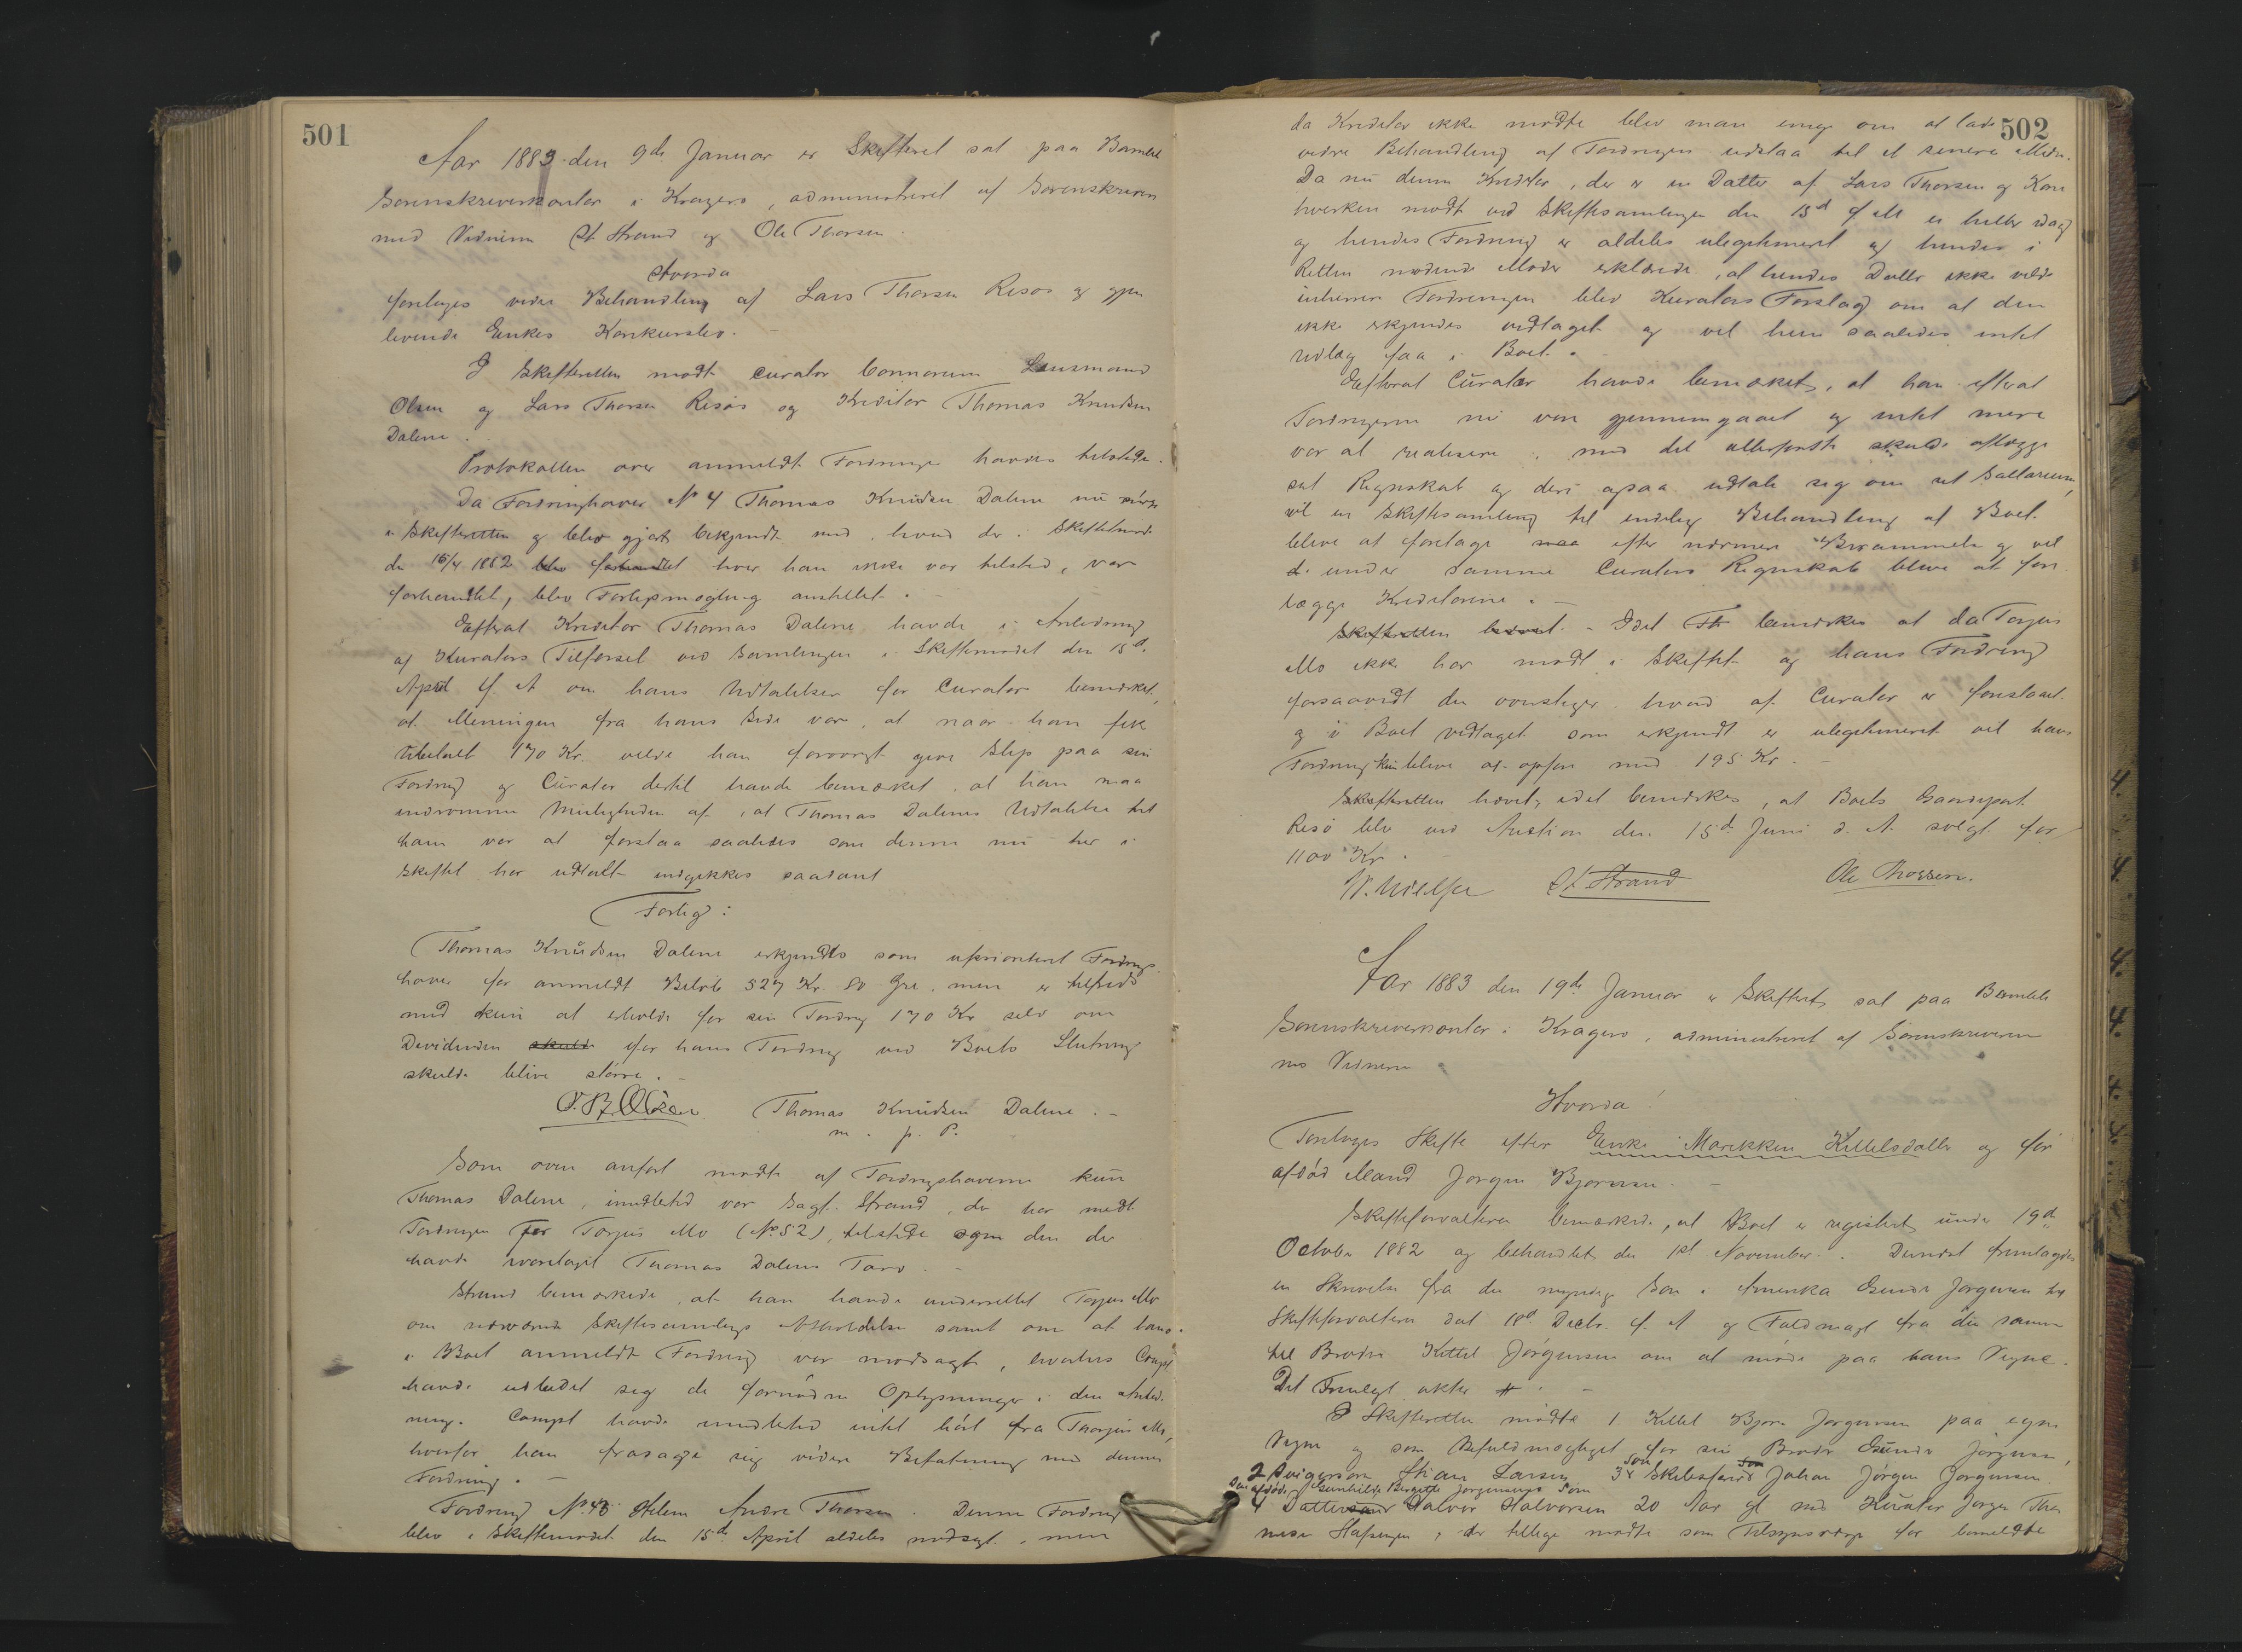 501
Aar 1883 den 9de Januar er Skifteret sat paa Bamble
Sorenskriverkontor i Kragerø, administreret af Sorenskriveren
med Vidnerne St Strand og Ole Thorsen.
Hvorda
foretoges videre Behandling af Lars Thorsen Risøs og gjen
levende Enkes Konkursbo.
I Skifteretten mødte curator bonorum Lensmand
Olsen og Lars Thorsen Risøs og Kreditor Thomas Knudsen
Dalene.
Protokollen over anmeldte Fordringer havdes tilstede.
Da Fordringshaver No 4 Thomas Knudsen Dalene nu
i Skifteretten og blev gjort bekjendt med, hvad der i Skiftemøde
den 15/4 1882 blev forhandlet hvor han ikke var tilsted, var
forhandlet, blev Forligsmægling anstillet.
Efterat Kreditor Thomas Dalene havde i Anledning
af Kurators Tilførsel ved Samlingen i Skiftemødet den 15d.
April f. A om hans Udtalelser for Curator bemærket,
at Meningen fra hans Side var, at naar han fik
udbetalt 170 Kr. vilde han forøvrigt give Slip paa sin
Fordring og Curator dertil havde bemærket, at han maa
indrømme Muligheden af, at Thomas Dalenes Udtalelse til
ham var at forstaa saaledes som denne nu her i
Skiftet har udtalt indgikkes saadant
Forlig:
Thomas Knudsen Dalene erkjendes som uprioritert Fordrings
haver for anmeldt Beløb 527 Kr. 80 Øre, men er tilfreds
med kun at erholde for sin Fordring 170 Kr selv om
Dividenden skulde for hans Fordring ved Boets Slutning
skulde blive større.
Olsen Thomas Knudsen Dalene.
m. p. P.
Som oven anført mødte af Fordringshaverne kun
Thomas Dalene, imidlertid var Sagf. Strand, der har meldt
Fordringen for Torjus Mo (No 52), tilstede som den der
havde ivaretaget Thomas Dalens Tarv.
Strand bemærkede, at han havde underrettet Torjus Mo
om nærværende Skiftesamlings Afholdelse samt om at hans
i Boet anmeldte Fordring var modsagt, hvorhos Compt
havde udbedet sig de fornødne Oplysninger i den Anled-
ning. Compt havde imidlertid intet hørt fra Thorjus Mo,
hvorfor han frasagde sig videre Befatning med dennes
Fordring.
Fordring No 43 Helene Andre Thorsen. Denne Fordring
blev i Skiftemødet den 15d. April aldeles modsagt, men
502
da Kreditor ikke mødte blev man enig om at lade
videre Behandling af Fordringen udstaa til et senere Møde.
Da nu denne Kreditor, der er en Datter af Lars Thorsen og Kone
hverken mødte ved Skiftesamlingen den 15d f. M ei heller idag
og hendes Fordring er aldeles ulegitimeret og hendes i
Retten mødende Moder erklærede, at hendes Datter ikke vilde
inherere Fordringen blev Kurators Forslag om at den
ikke erkjendes vedtaget og vil hun saaledes intet
Udlæg faa i Boet.
Efterat Curator havde bemærket, at han efterat
Fordringerne nu var gjennemgaaet og intet mere
var at realisere, med det allerførste skulde aflægge
sit Regnskab og deri ogsaa udtale sig om sit Sallarium,
vil en Skiftesamling til endelig Behandling af Boet
blive at foretage maa efter nærmere Berammelse og vil
d. under samme Curators Regnskab blive at fore
lægge Kreditorerne.
Skifteretten hævet. - Idet Th bemærkes at da Torjus
Mo ikke har mødt i Skiftet og hans Fordring
forsaavidt den overstiger hvad af Curator er foreslaaet
og i Boet vedtaget som erkjendt er ulegitimeret vil hans
Fordring kun blive at opføre med 195 Kr.
Skifteretten hævet, idet bemærkes, at Boets Gaardpart
Risø blev ved Auktion den 15d. Juni d. A. solgt for
1100 Kr.
St Strand Ole Thorsen.
Aar 1883 den 19de Januar er Skifteret sat paa Bamble
Sorenskriverkontor i Kragerø, administreret af Sorenskriveren
med Vidnerne
Hvorda!
Foretoges Skifte efter Enke Marekken Kittelsdatter og før
afdød Mand Jørgen Bjørnsen.
Skifteforvalteren bemærkede, at Boet er registrert under 19de
October 1882 og behandlet den 1st November. Dernæst fremlagdes
en Skrivelse fra den myndige Søn i Amerika Gunder Jørgensen til
Skifteforvalteren dat 18d. Decbr. f. A og Fuldmagt fra den samme
til Broder Kittel Jørgensen om at møde paa hans Vegne.
Det Fremlagte akter
I Skifteretten mødte 1 Kittel Bjørn Jørgensen paa egne
Vegne og som Befuldmægtiget for sin Broder Gunder Jørgensen,
2 Svigersøn Stian Larsen 3 Søn Skibsfører Johan Jørgen Jørgensen.
Den afdøde Gunhilde Birgitte Jørgensens Søn
4 Dattersøn Halvor Halvorsen 20 Aar gl med Kurator Jørgen Tho
mesen Stafsengen, der tillige mødte som Tilsynsværge for bemeldte